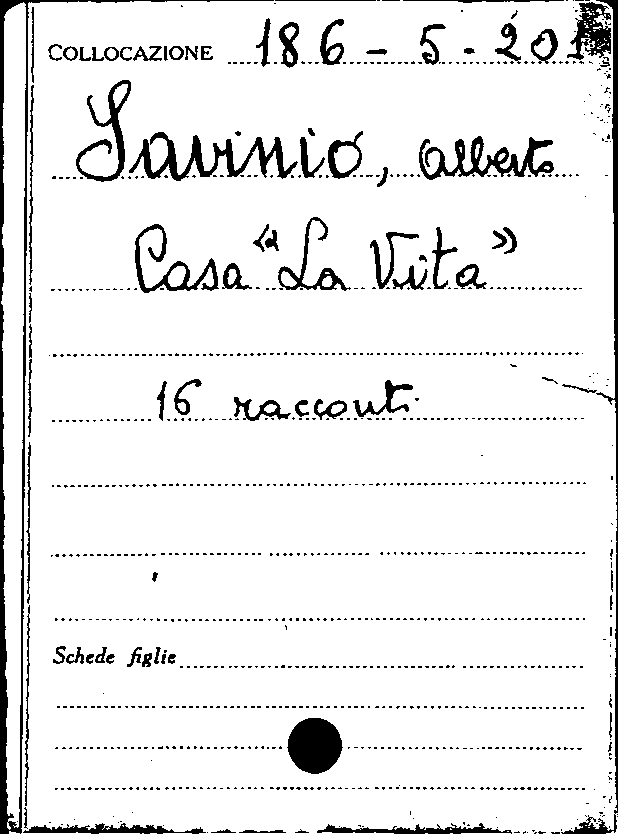 COLLOCAZIONE 186 - 5 - 201
Savinio, Alberto
Casa "La Vita"
16 racconti
Schede figlie